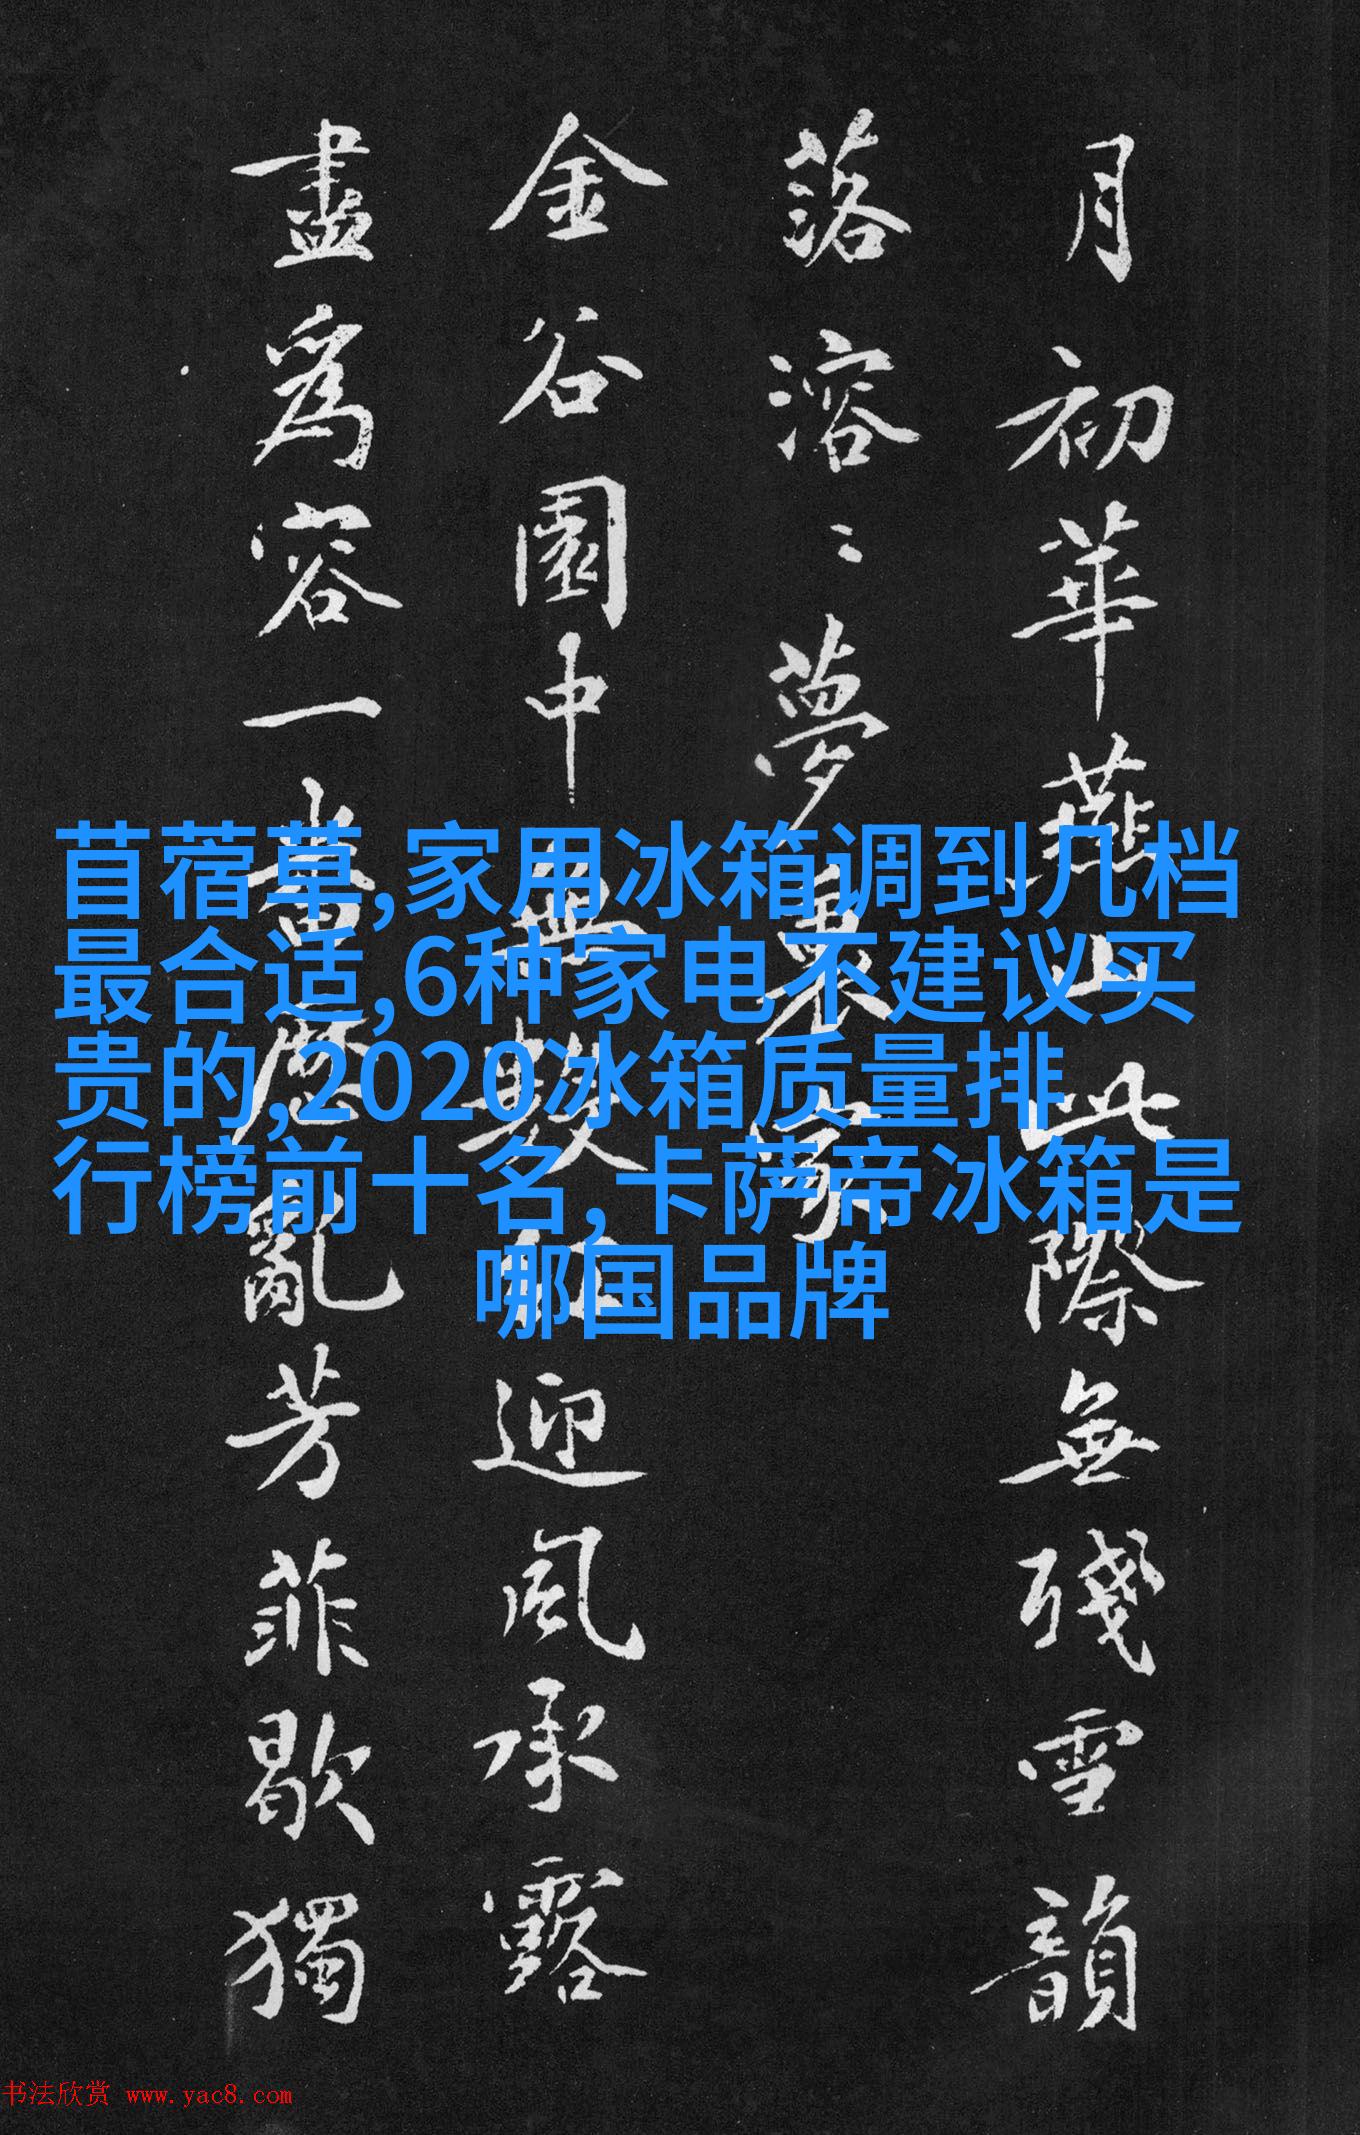 月初華燕山此際無殘雪韻
落溶〻夢裏家
金谷園中無數紅迎風承露
盡為容一番歷亂芳菲歇獨
苜蓿草,家用冰箱调到几档
最合适,6种家电不建议买
贵的,2020冰箱质量排
行榜前十名,卡萨帝冰箱是
哪国品牌
书法欣赏 www.yac8.com